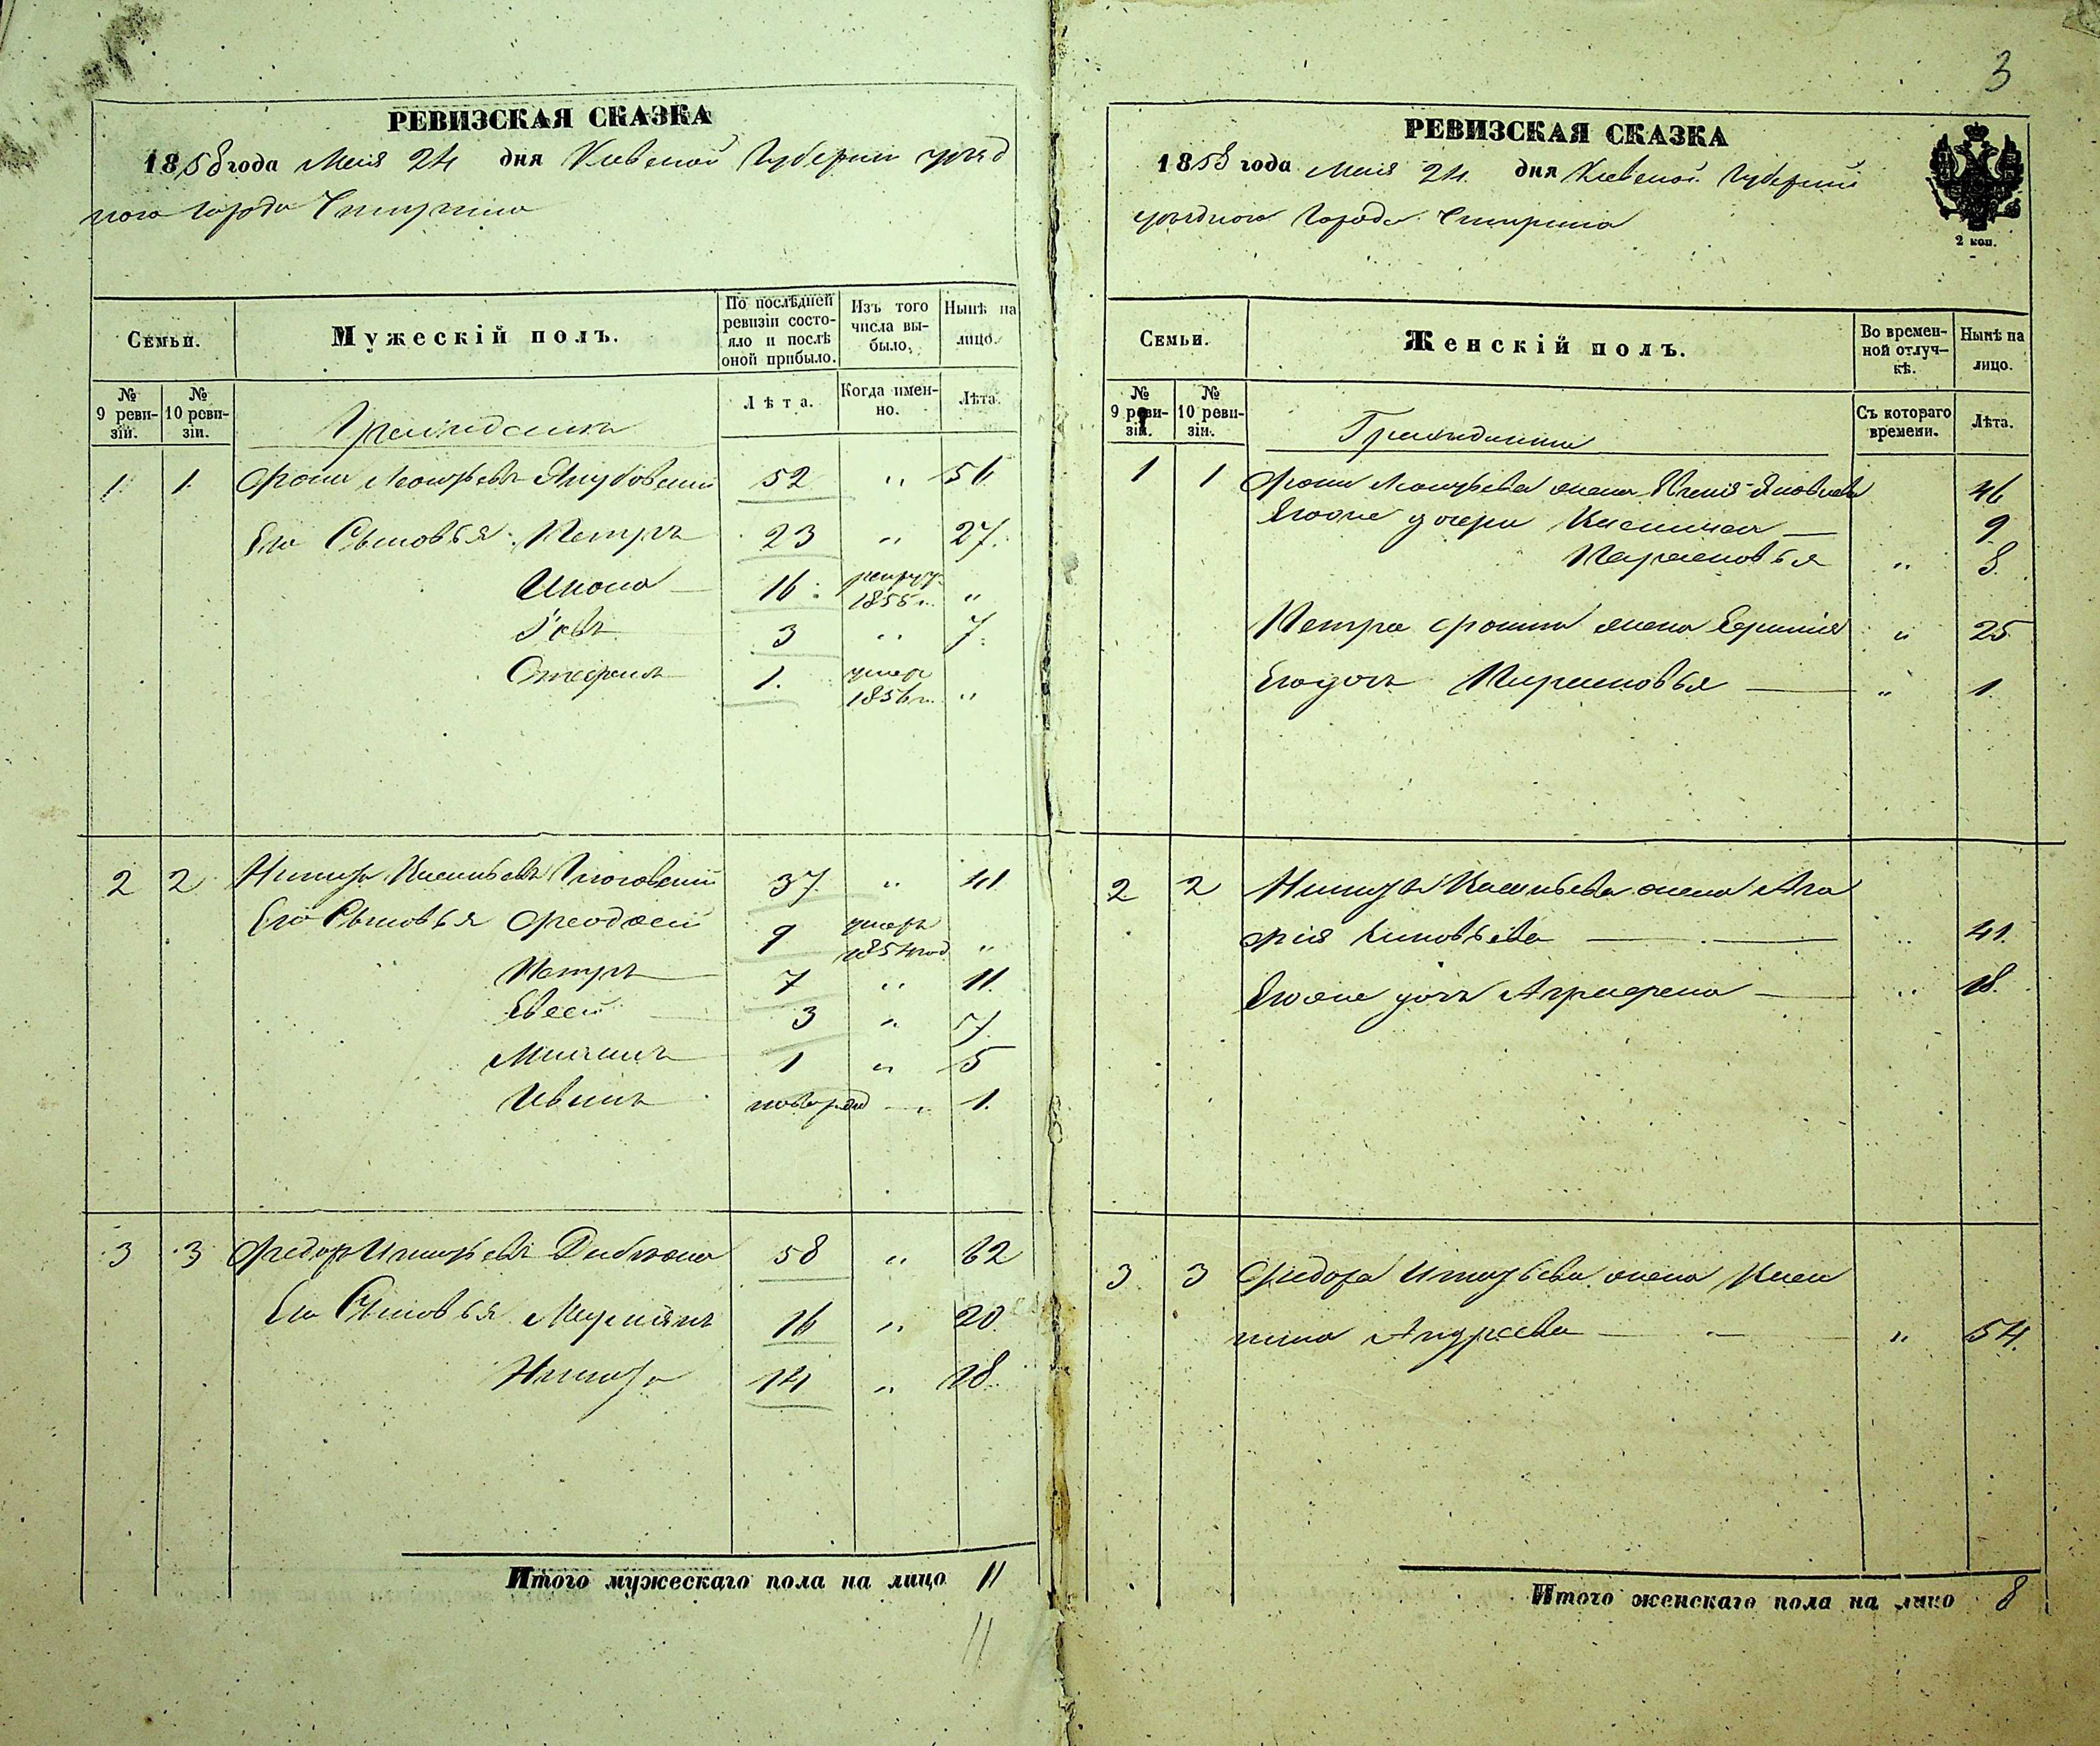 РЕВИЗСКАЯ СКАЗКА
1858 года Мая 24 дня Киевской Губернии уѣзд
ного города Чигирина
Семьи.
Мужескій полъ.
По послѣдней ревизіи состояло и послѣ оной прибыло.
Изъ того числа выбыло.
Нынѣ на лицо.
№ 9 ревизіи.
№ 10 ревизіи.
Лѣта.
Когда именно.
Лѣта.
Граждане
1. 1. Фома Якубовскій 52 " 56
Его Сыновья Петръ 23 " 27.
16 рекрут. 1855 г. "
3 " 7.
Стефанъ 1. умеръ 1856 г. "
2 2 Никита Васильевъ 37 " 41
Его Сыновья Феодосій 9 умеръ 1854 год "
Петръ 7 " 11.
Евсей 3 " 7.
1 " 5
Иванъ новорожд " 1.
3 3 Федоръ Игнатьевъ 58 " 62
Его Сыновья 16 " 20.
Никита 14 " 18.
Итого мужескаго пола на лицо 11
11
3
РЕВИЗСКАЯ СКАЗКА
1858 года Мая 24. дня Киевской Губернии
уѣздного Города Чигирина
2 коп.
Семьи.
Женскій полъ.
Во временной отлучкѣ.
Нынѣ на лицо.
№ 9 ревизіи.
№ 10 ревизіи.
Съ котораго времени.
Лѣта.
Гражданки
1 1 Фомы жена Яковлева 46
Его же дочери 9
Парасковья " 8.
Петра Фомина жена " 25
Его дочь Парасковья " 1.
2 2 Никиты Васильева жена Ага
фія Зиновьева " 41.
Его же дочь Аграфена " 18.
3 3 Федора Игнатьева жена
Андреева " 54.
Итого женскаго пола на лицо 8